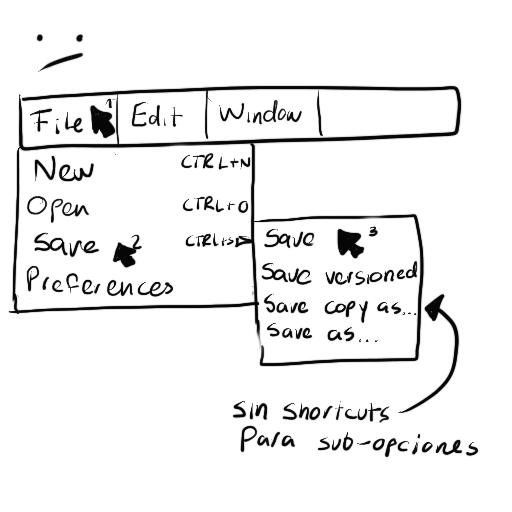 File 1 Edit Window
New CTRL+N
Open CTRL+O
Save 2 CTRL+S
Preferences
Save 3
Save versioned
Save copy as...
Save as...
sin shortcuts
Para sub-opciones